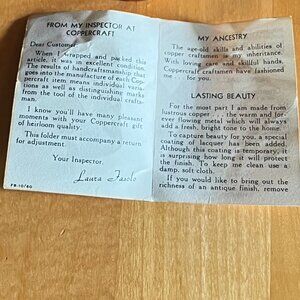 FROM MY INSPECTOR AT
COPPERCRAFT
Dear Customer
When I wrapped and packed this
article, it was in excellent condition.
The results of handcraftsmanship that
goes into the manufacture of each Cop-
percraft item means individual varia-
tions as well as distinguishing marks
from the tool of the individual crafts-
man.
I know you'll have many pleasant
moments with your Coppercraft gift
of heirloom quality.
This folder must accompany a return
for adjustment.
Your Inspector,
Laura
FB-10/60
MY ANCESTRY
The age-old skills and abilities of
copper craftsmen is my inheritance.
With loving care and skillful hands,
Coppercraft craftsmen have fashioned
for you.
LASTING BEAUTY
For the most part I am made from
lustrous copper . . . the warm and for-
ever flowing metal which will always
add a fresh, bright tone to the home.
To capture beauty for you, a special
coating of lacquer has been added.
Although this coating is temporary, it
is surprising how long it will protect
the finish. To keep me clean use a
damp, soft cloth.
If you would like to bring out the
richness of an antique finish, remove